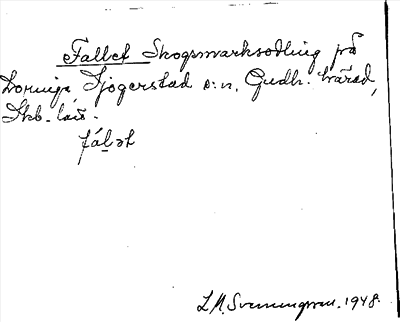 Fallet Skogsmarksodling på
Sjögerstad s:n, Gudh. härad,
Skb. län.
fálət
L. A. Svenungsson. 1948.